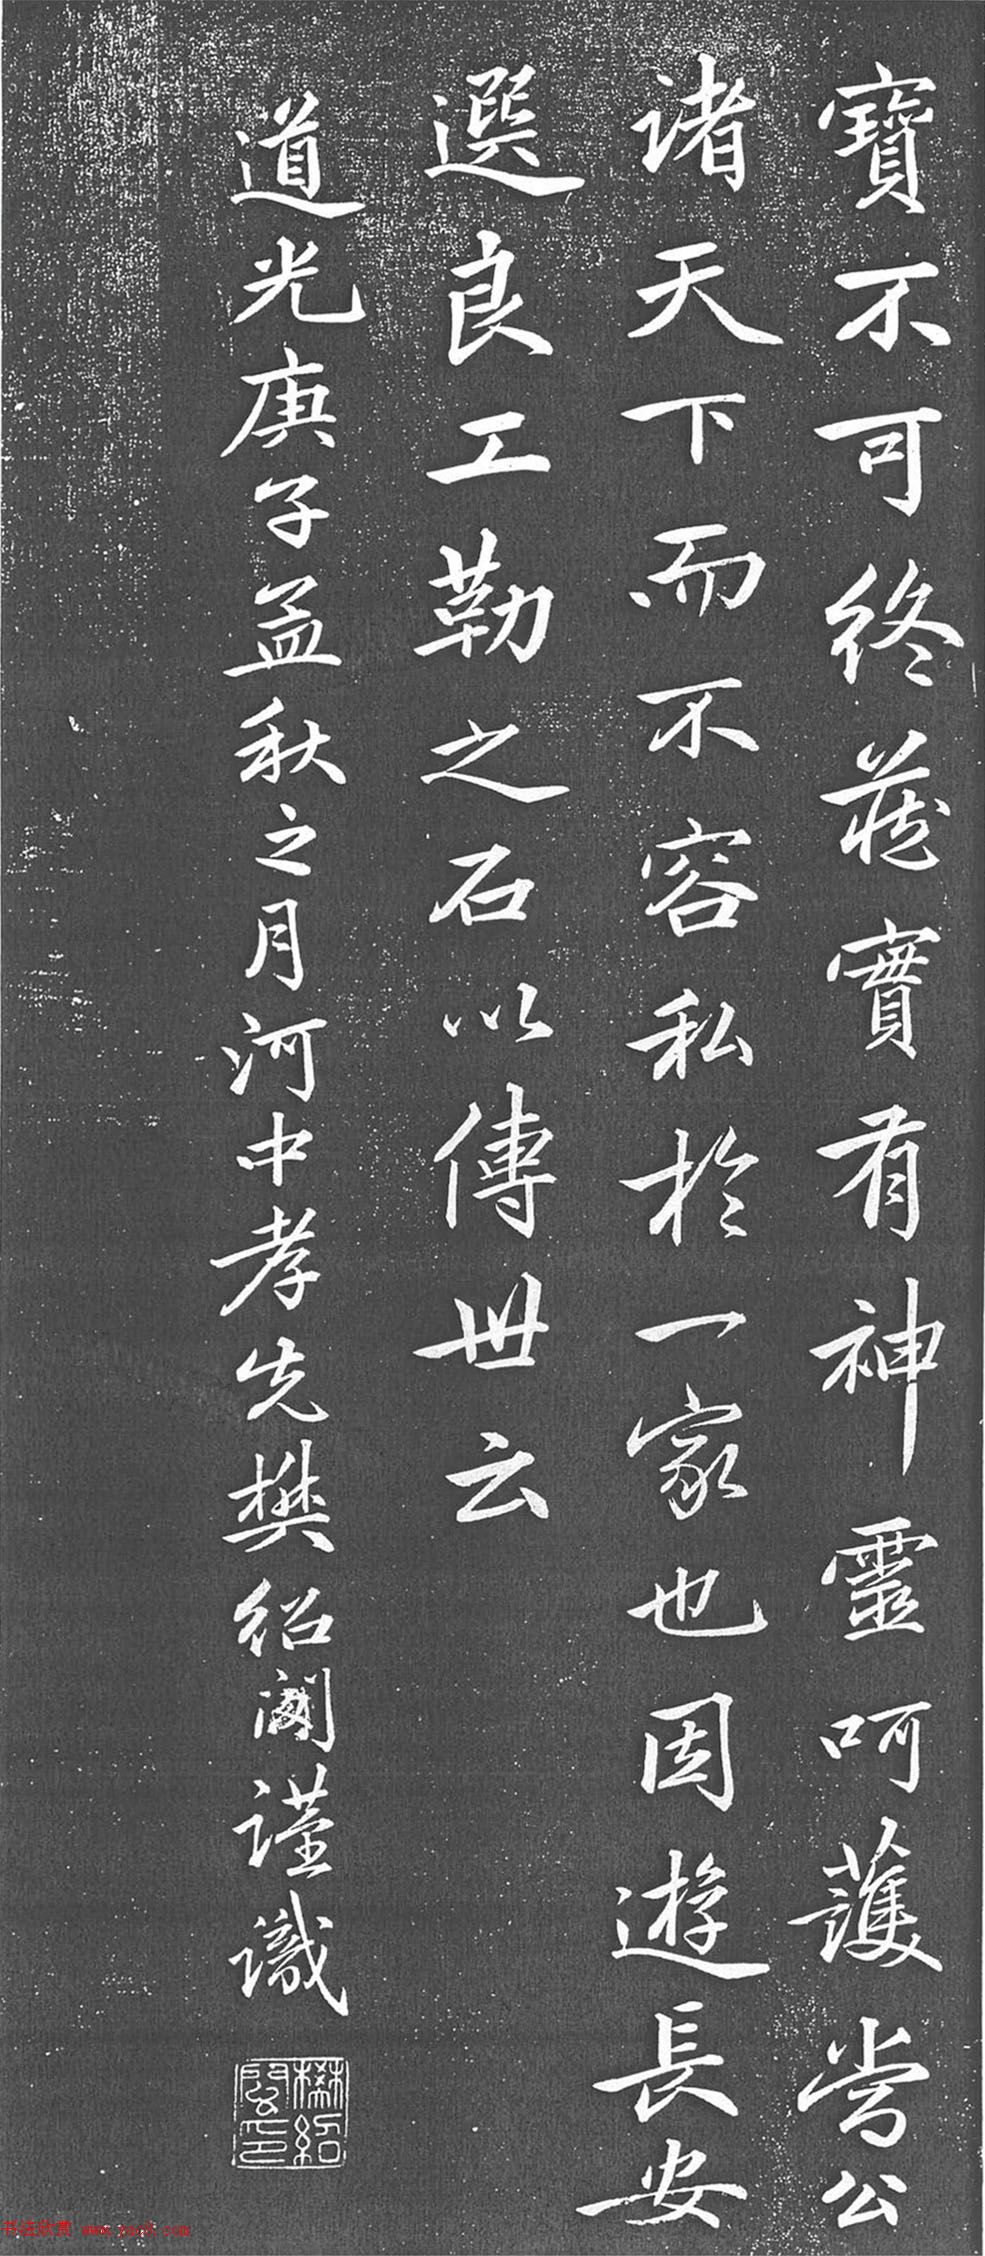 寶不可終藏實有神靈呵護當公
諸天下而不容私於一家也因遊長安
選良工勒之石以傳世云
道光庚子孟秋之月河中孝先樊紹閎謹識
樊紹閎印
书法欣赏 www.yac8.com